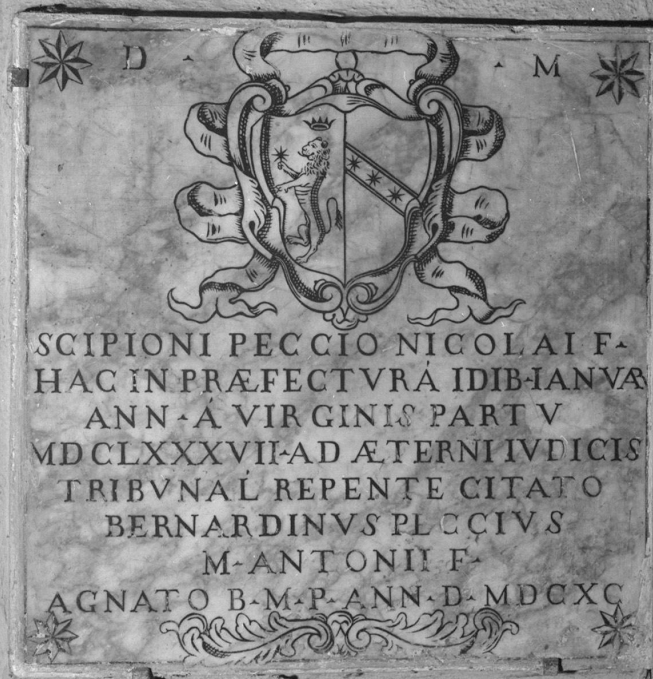 D · M
SCIPIONI PECCIO NICOLAI F·
HAC IN PRÆFECTVRÁ IDIB·IANVÆ
ANN·Á VIRGINIS PARTV
MDCLXXXVII·AD ÆTERNI IVDICIS
TRIBVNAL REPENTE CITATO
BERNARDINVS PECCIVS
M·ANTONII F·
AGNATO B·M·P·ANN·D·MDCXC